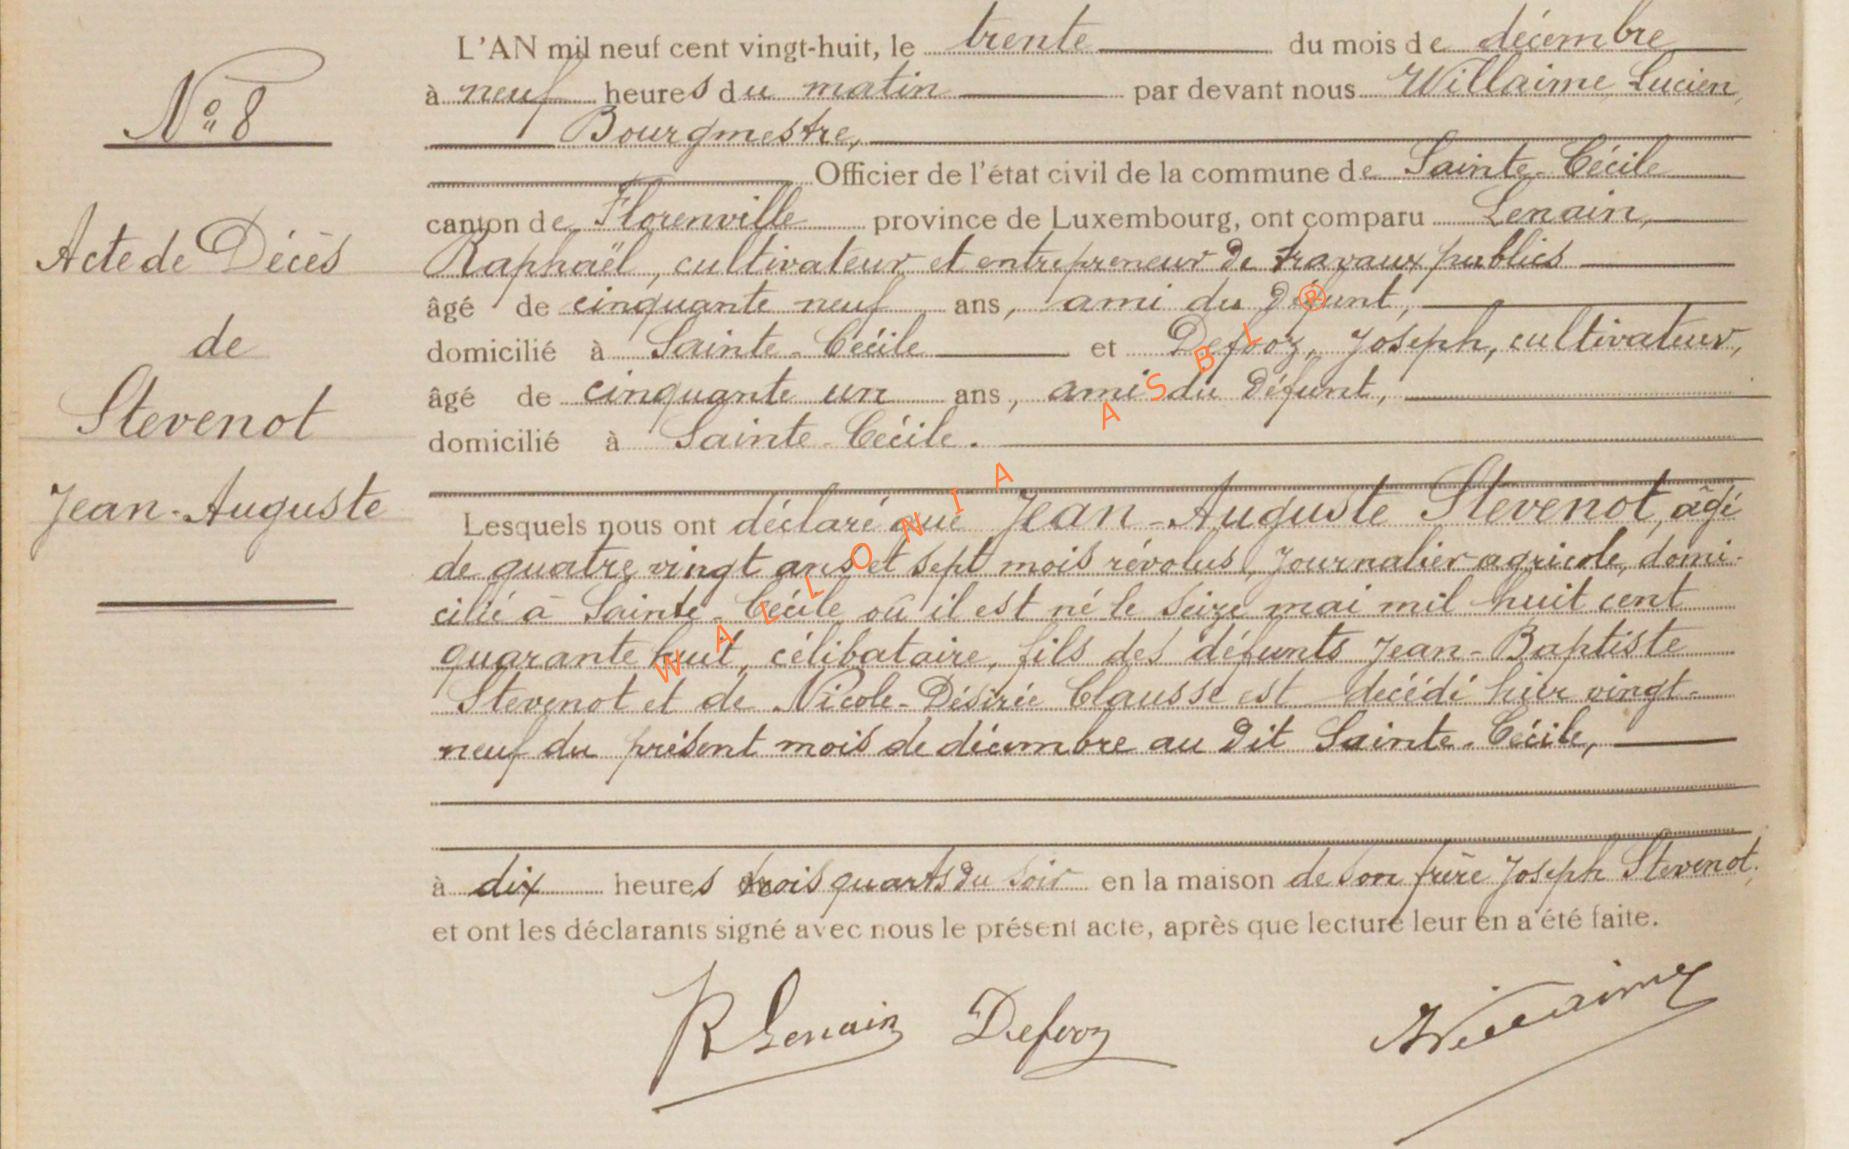 N° 8
Acte de Décès
de
Stevenot
Jean-Auguste
L'AN mil neuf cent vingt-huit, le trente du mois de décembre
à neuf heures du matin par devant nous Willaime Lucien,
Bourgmestre,
Officier de l'état civil de la commune de Sainte-Cécile
canton de Florenville province de Luxembourg, ont comparu Lenain,
Raphaël, cultivateur et entrepreneur de travaux publics
âgé de cinquante neuf ans, ami du défunt,
domicilié à Sainte-Cécile et Defooz, Joseph, cultivateur,
âgé de cinquante un ans, ami du défunt,
domicilié à Sainte-Cécile.
Lesquels nous ont déclaré que Jean-Auguste Stevenot, âgé
de quatre vingt ans et sept mois révolus, journalier agricole, domi-
cilié à Sainte-Cécile où il est né le seize mai mil huit cent
quarante huit, célibataire, fils des défunts Jean-Baptiste
Stevenot et de Nicole-Désirée Clausse est décédé hier vingt-
neuf du présent mois de décembre au dit Sainte-Cécile,
à dix heures trois quarts du soir en la maison de son frère Joseph Stevenot,
et ont les déclarants signé avec nous le présent acte, après que lecture leur en a été faite.
R Lenain Defooz Willaime
WALLONIA ASBL ®